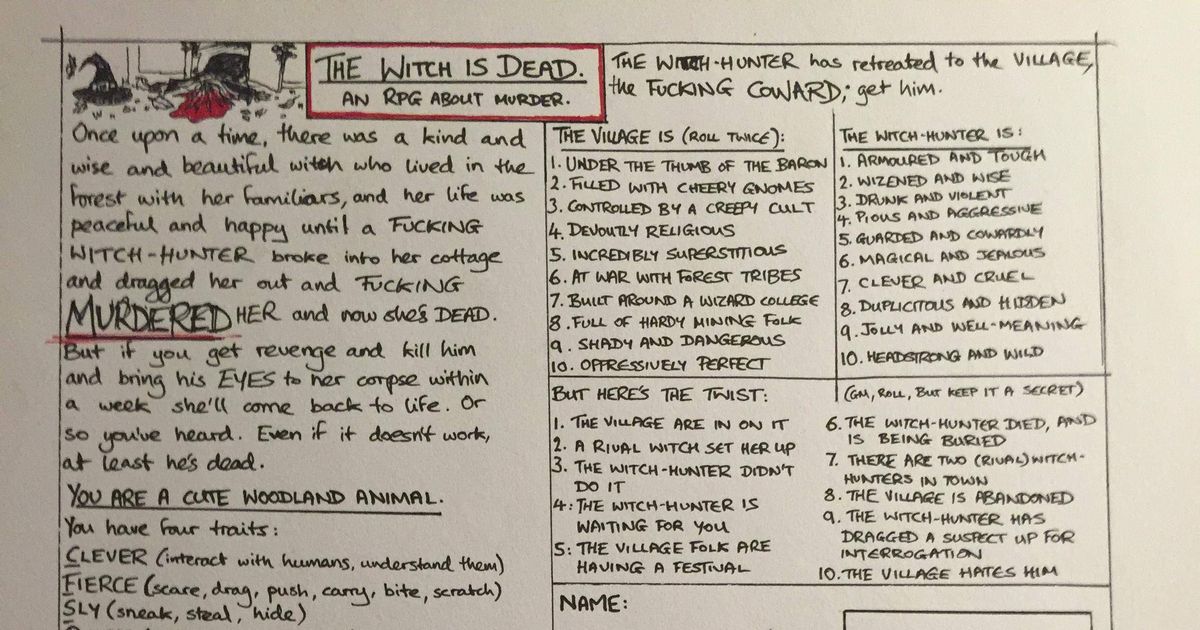 THE WITCH IS DEAD.
AN RPG ABOUT MURDER.
THE WITCH-HUNTER has retreated to the VILLAGE,
the FUCKING COWARD; get him.
Once upon a time, there was a kind and
wise and beautiful witch who lived in the
forest with her familiars, and her life was
peaceful and happy until a FUCKING
WITCH-HUNTER broke into her cottage
and dragged her out and FUCKING
MURDERED HER and now she's DEAD.
But if you get revenge and kill him
and bring his EYES to her corpse within
a week she'll come back to life. Or
so you've heard. Even if it doesn't work,
at least he's dead.
YOU ARE A CUTE WOODLAND ANIMAL.
You have four traits:
CLEVER (interact with humans, understand them)
FIERCE (scare, drag, push, carry, bite, scratch)
SLY (sneak, steal, hide)
THE VILLAGE IS (ROLL TWICE):
1. UNDER THE THUMB OF THE BARON
2. FILLED WITH CHEERY GNOMES
3. CONTROLLED BY A CREEPY CULT
4. DEVOUTLY RELIGIOUS
5. INCREDIBLY SUPERSTITIOUS
6. AT WAR WITH FOREST TRIBES
7. BUILT AROUND A WIZARD COLLEGE
8. FULL OF HARDY MINING FOLK
9. SHADY AND DANGEROUS
10. OPPRESSIVELY PERFECT
THE WITCH-HUNTER IS:
1. ARMOURED AND TOUGH
2. WIZENED AND WISE
3. DRUNK AND VIOLENT
4. PIOUS AND AGGRESSIVE
5. GUARDED AND COWARDLY
6. MAGICAL AND JEALOUS
7. CLEVER AND CRUEL
8. DUPLICITOUS AND HIDDEN
9. JOLLY AND WELL-MEANING
10. HEADSTRONG AND WILD
BUT HERE'S THE TWIST:
(GM, ROLL, BUT KEEP IT A SECRET)
1. THE VILLAGE ARE IN ON IT
2. A RIVAL WITCH SET HER UP
3. THE WITCH-HUNTER DIDN'T
DO IT
4: THE WITCH-HUNTER IS
WAITING FOR YOU
5: THE VILLAGE FOLK ARE
HAVING A FESTIVAL
6. THE WITCH-HUNTER DIED, AND
IS BEING BURIED
7. THERE ARE TWO (RIVAL) WITCH-
HUNTERS IN TOWN
8. THE VILLAGE IS ABANDONED
9. THE WITCH-HUNTER HAS
DRAGGED A SUSPECT UP FOR
INTERROGATION
10. THE VILLAGE HATES HIM
NAME: